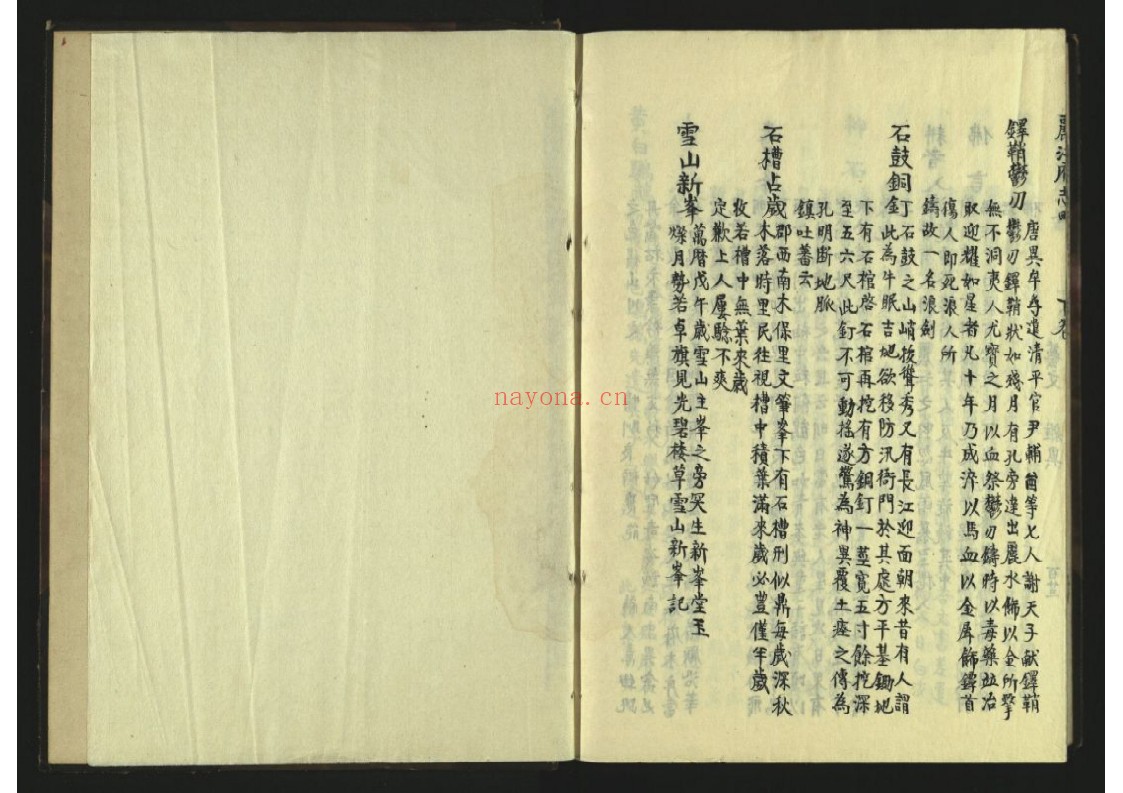 鐸鞘鬱刃
唐異牟尋遣清平官尹輔酋等七人謝天子獻鐸鞘
鬱刃鐸鞘狀如殘月有孔旁達出麗水飾以金所擊
無不洞夷人尤寶之月以血祭鬱刃鑄時以毒藥並冶
取迎耀如星者凡十年乃成淬以馬血以金犀飾鐔首
傷人即死浪人所
鑄故一名浪劍
石鼓銅釘
石鼓之山峭拔聳秀又有長江迎面朝來昔有人謂
此為牛眠吉地欲移防汛衙門於其處方平基鋤地
下有石棺啓石棺再挖有方銅釘一莖寬五寸餘挖深
至五六尺此釘不可動搖遂驚為神異覆土瘞之傳為
孔明斷地脈
鎮吐蕃云
石槽占歲
郡西南木保里文筆峯下有石槽刑似鼎每歲深秋
木落時里民往視槽中積葉滿來歲必豐僅半歲
牧若槽中無葉來歲
定歉上人屢驗不爽
雪山新峯
萬曆戊午歲雪山主峯之旁突生新峯堂玉
燦月勢若卓旗見光碧樓草雪山新峯記
nayona.cn